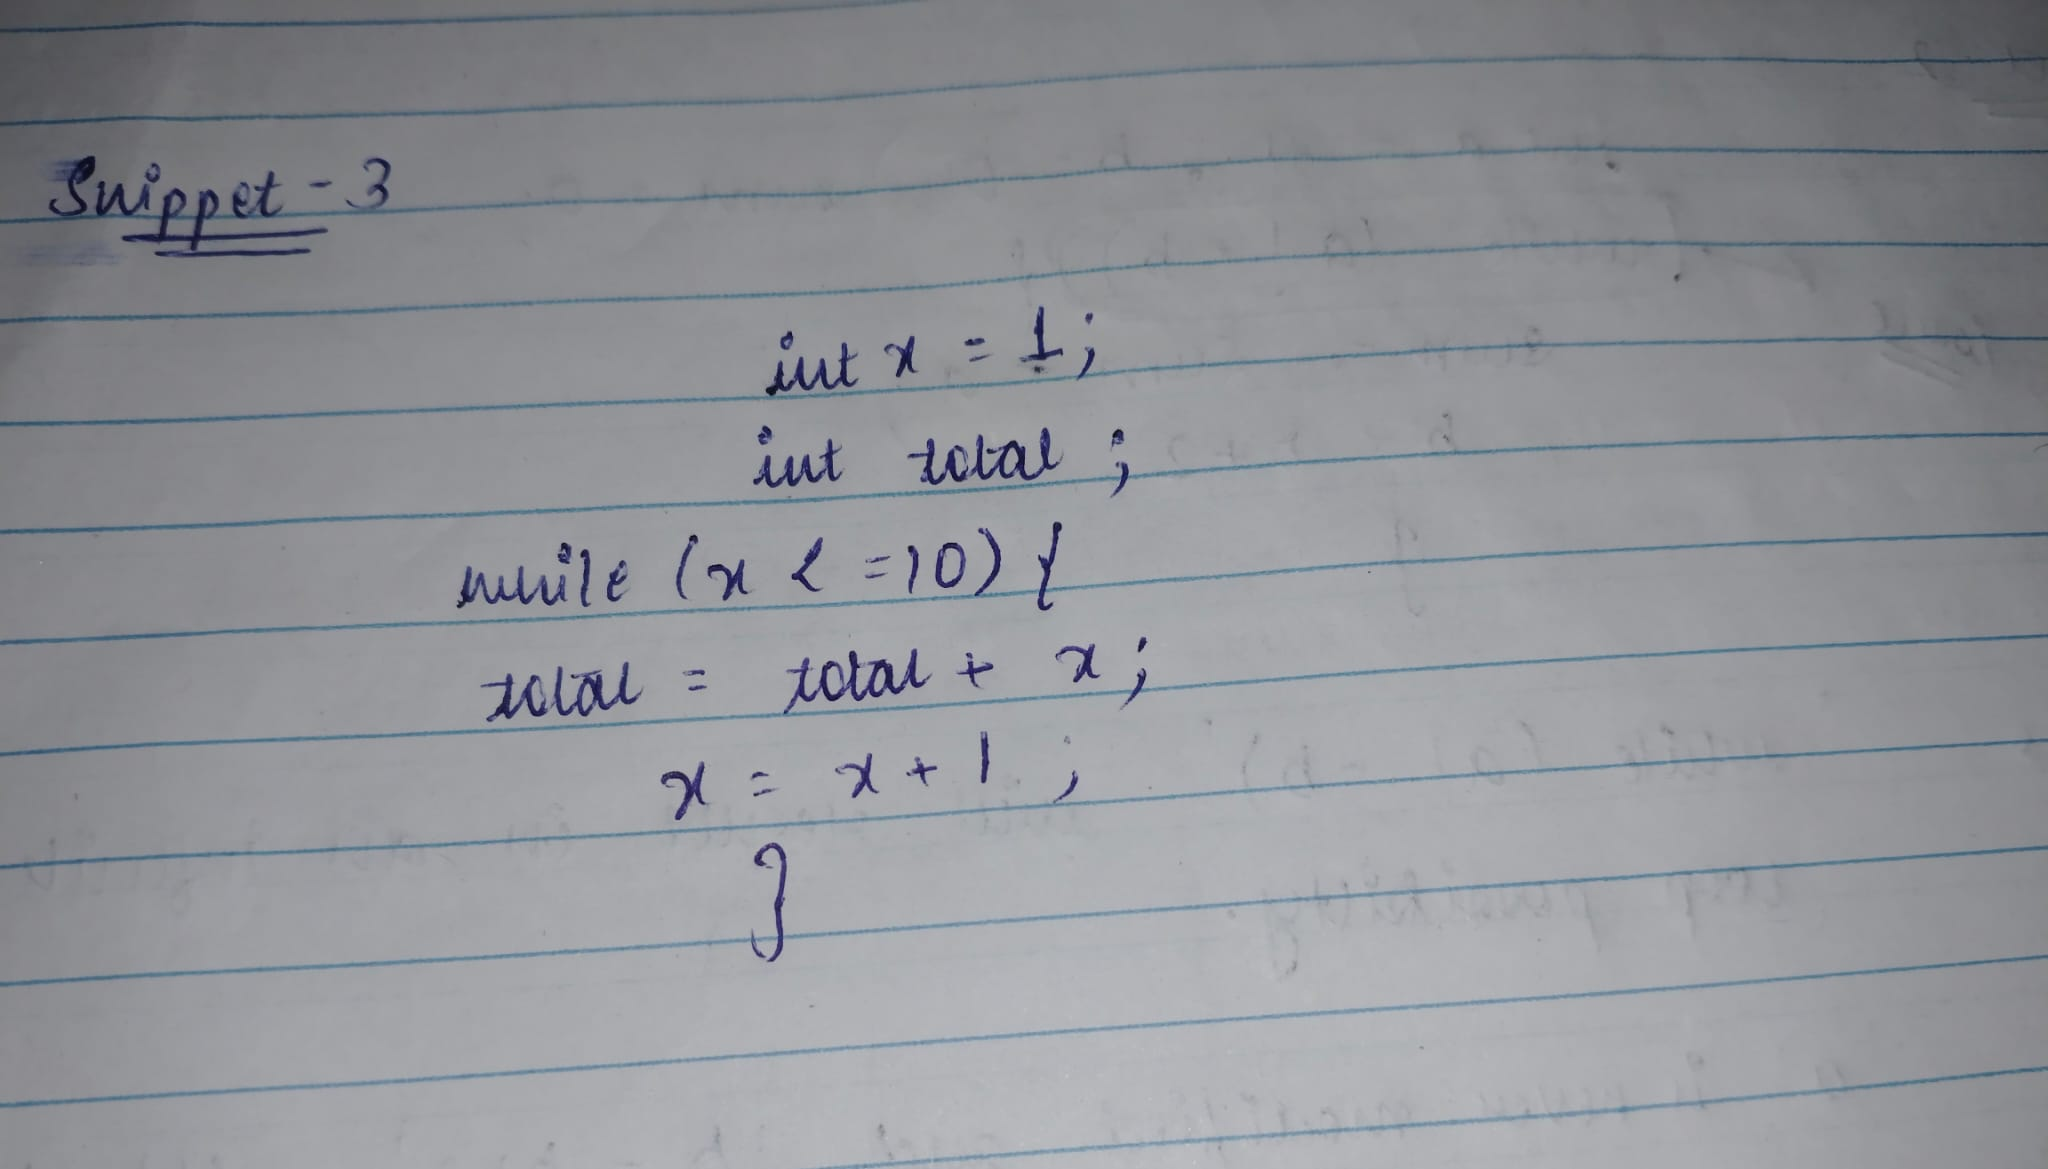 Snippet - 3
int x = 1;
int total ;
while (x < =10) {
total = total + x;
x = x + 1 ;
}